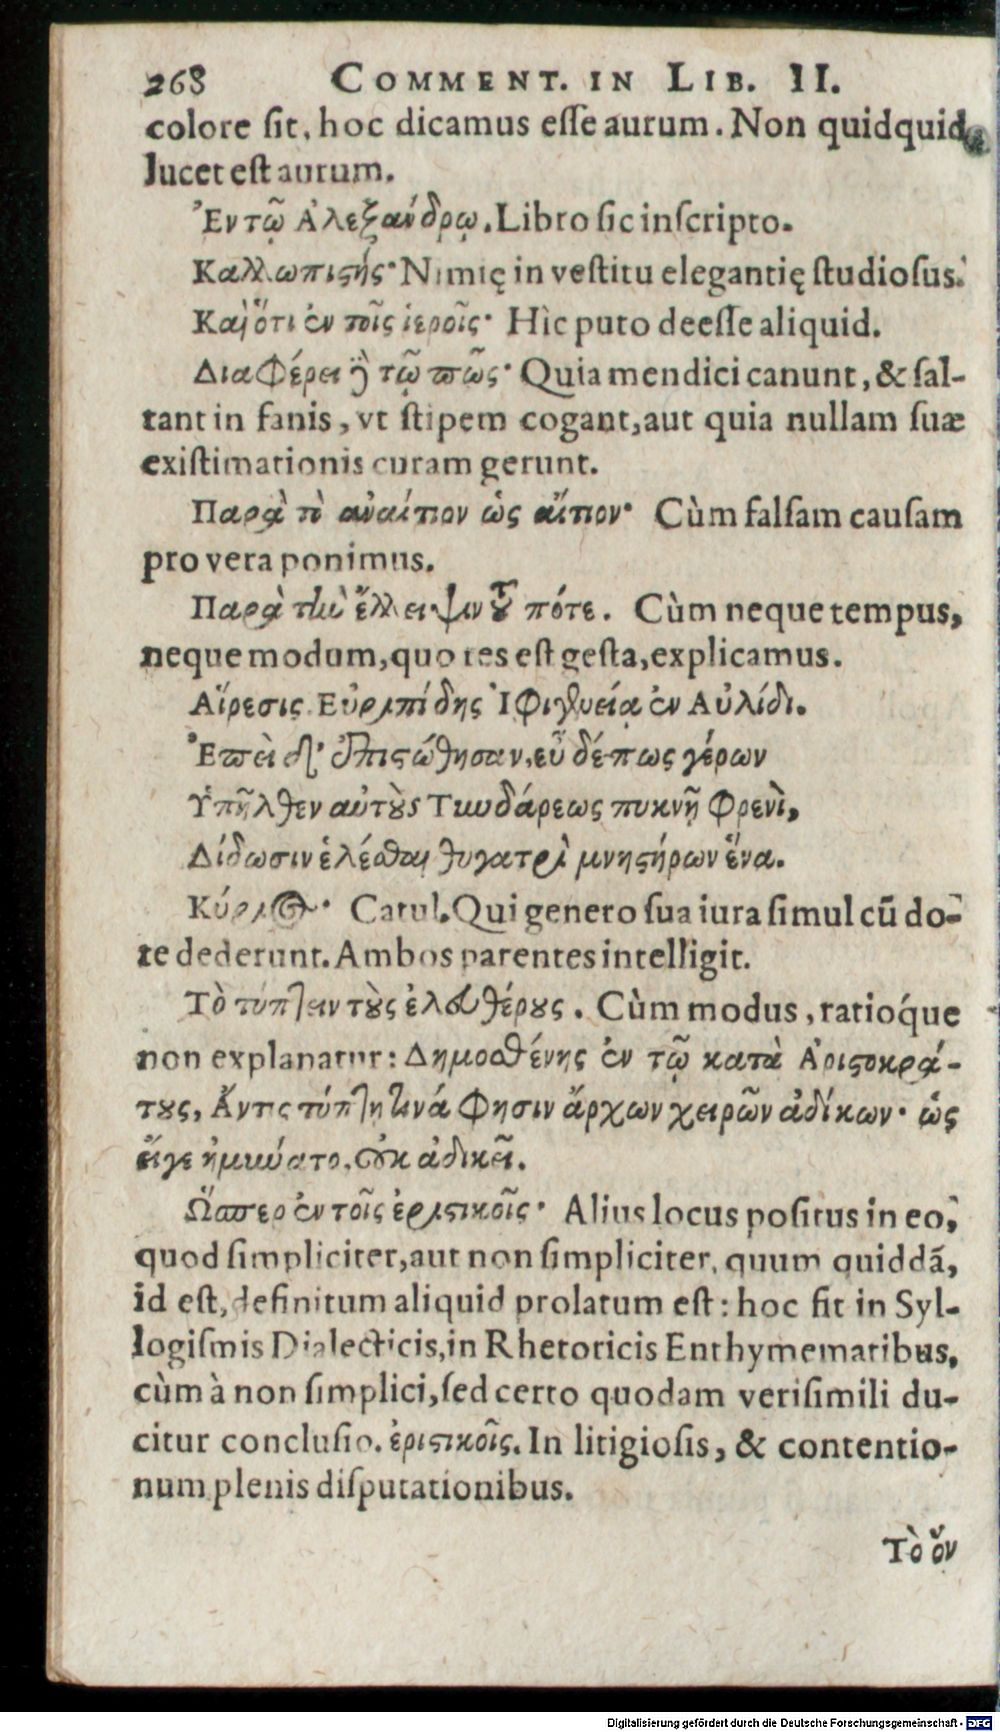 268 COMMENT. IN LIB. II.
colore ſit, hoc dicamus eſſe aurum. Non quidquid
lucet eſt aurum.
Ἐν τῷ Ἀλεξάνδρῳ. Libro ſic inſcripto.
Καλλωπιϛής· Nimię in veſtitu elegantię ſtudioſus.
Καὶ ὅτι ἐν τοῖς ἱεροῖς· Hìc puto deeſſe aliquid.
Διαφέρει ἢ τῷ πῶς· Quia mendici canunt, & ſal-
tant in fanis, vt ſtipem cogant, aut quia nullam ſuæ
exiſtimationis curam gerunt.
Παρὰ τὸ ἀναίτιον ὡς αἴτιον· Cùm falſam cauſam
pro vera ponimus.
Παρὰ τὴν ἔλλειψιν τȣ͂ πότε. Cùm neque tempus,
neque modum, quo res eſt geſta, explicamus.
Αἵρεσις. Εὐριπίδης Ἰφιγενείᾳ ἐν Αὐλίδι.
Ἐπεὶ δ' ἐπιϛώθησαν, εὖ δέ πως γέρων
Ὑπῆλθεν αὐτȣ̀ς Τυνδάρεως πυκνῇ φρενὶ,
Δίδωσιν ἑλέσθαι θυγατρὶ μνηϛήρων ἕνα.
Κύριος· Catul. Qui genero ſua iura ſimul cũ do-
te dederunt. Ambos parentes intelligit.
Τὸ τύπτειν τȣ̀ς ἐλευθέρȣς. Cùm modus, ratióque
non explanatur: Δημοσθένης ἐν τῷ κατὰ Ἀριϛοκρά-
τȣς, Ἄν τις τύπτῃ τινά φησιν ἄρχων χειρῶν ἀδίκων· ὡς
εἴγε ἠμύνατο, οὐκ ἀδικεῖ.
Ὥσπερ ἐν τοῖς ἐριϛικοῖς· Alius locus poſitus in eo,
quod ſimpliciter, aut non ſimpliciter, quum quiddã,
id eſt, definitum aliquid prolatum eſt: hoc fit in Syl-
logiſmis Dialecticis, in Rhetoricis Enthymematibus,
cùm à non ſimplici, ſed certo quodam veriſimili du-
citur concluſio. ἐριϛικοῖς. In litigioſis, & contentio-
num plenis diſputationibus.
Τὸ ὂν
Digitalisierung gefördert durch die Deutsche Forschungsgemeinschaft - DFG